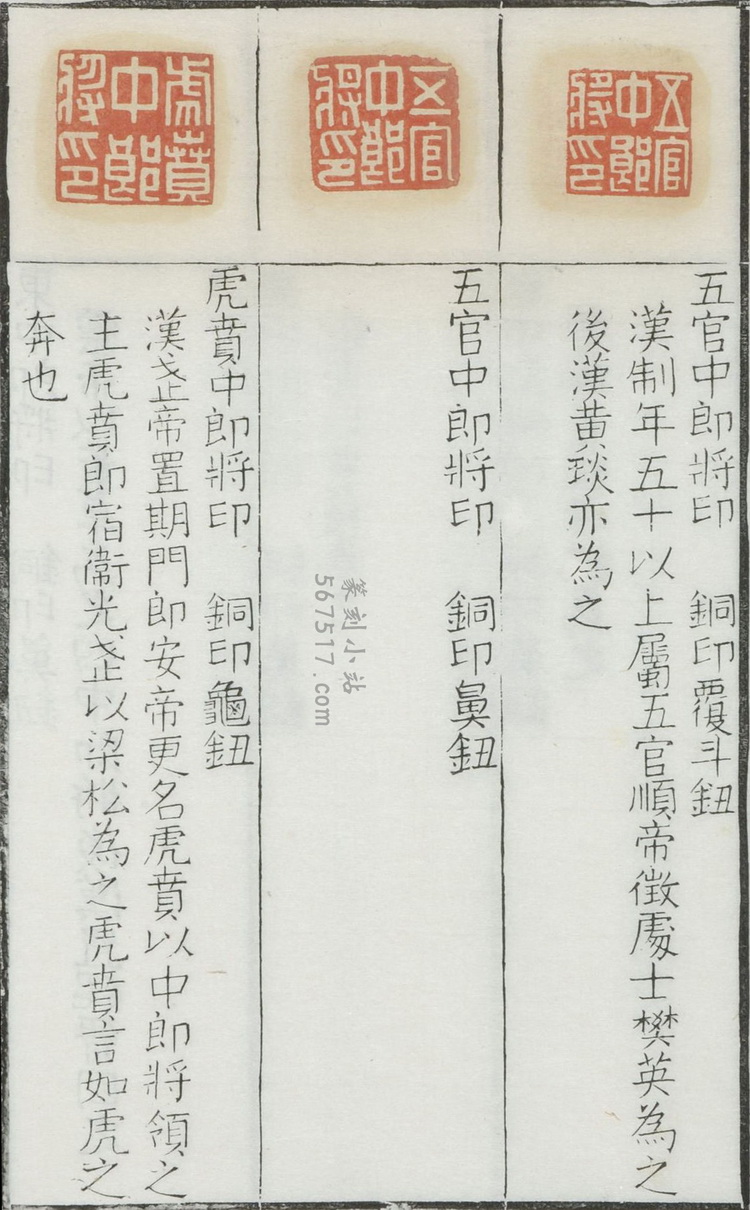 五官
中郎
將印
五官中郎將印　銅印覆斗鈕
漢制年五十以上屬五官順帝徵處士樊英為之
後漢黃琰亦為之
五官
中郎
將印
五官中郎將印　銅印鼻鈕
虎賁
中郎
將印
虎賁中郎將印　銅印龜鈕
漢武帝置期門郎安帝更名虎賁以中郎將領之
主虎賁郎宿衞光武以梁松為之虎賁言如虎之
奔也
篆刻小站
567517.com